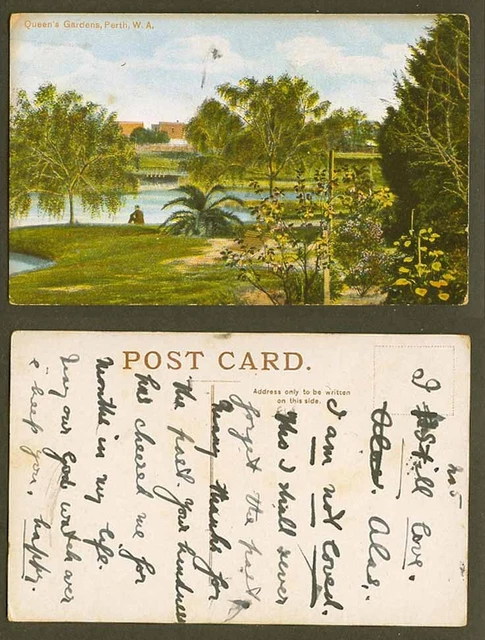 Queen's Gardens, Perth, W. A.
POST CARD.
Address only to be written
on this side.
No 5
I still love.
Alas. Alas,.
I am not loved.
Tho I shall never
forget the past
Many thanks for
the past. Your kindness
has cheered me for
months in my life.
May our God watch over
& keep you, happy.